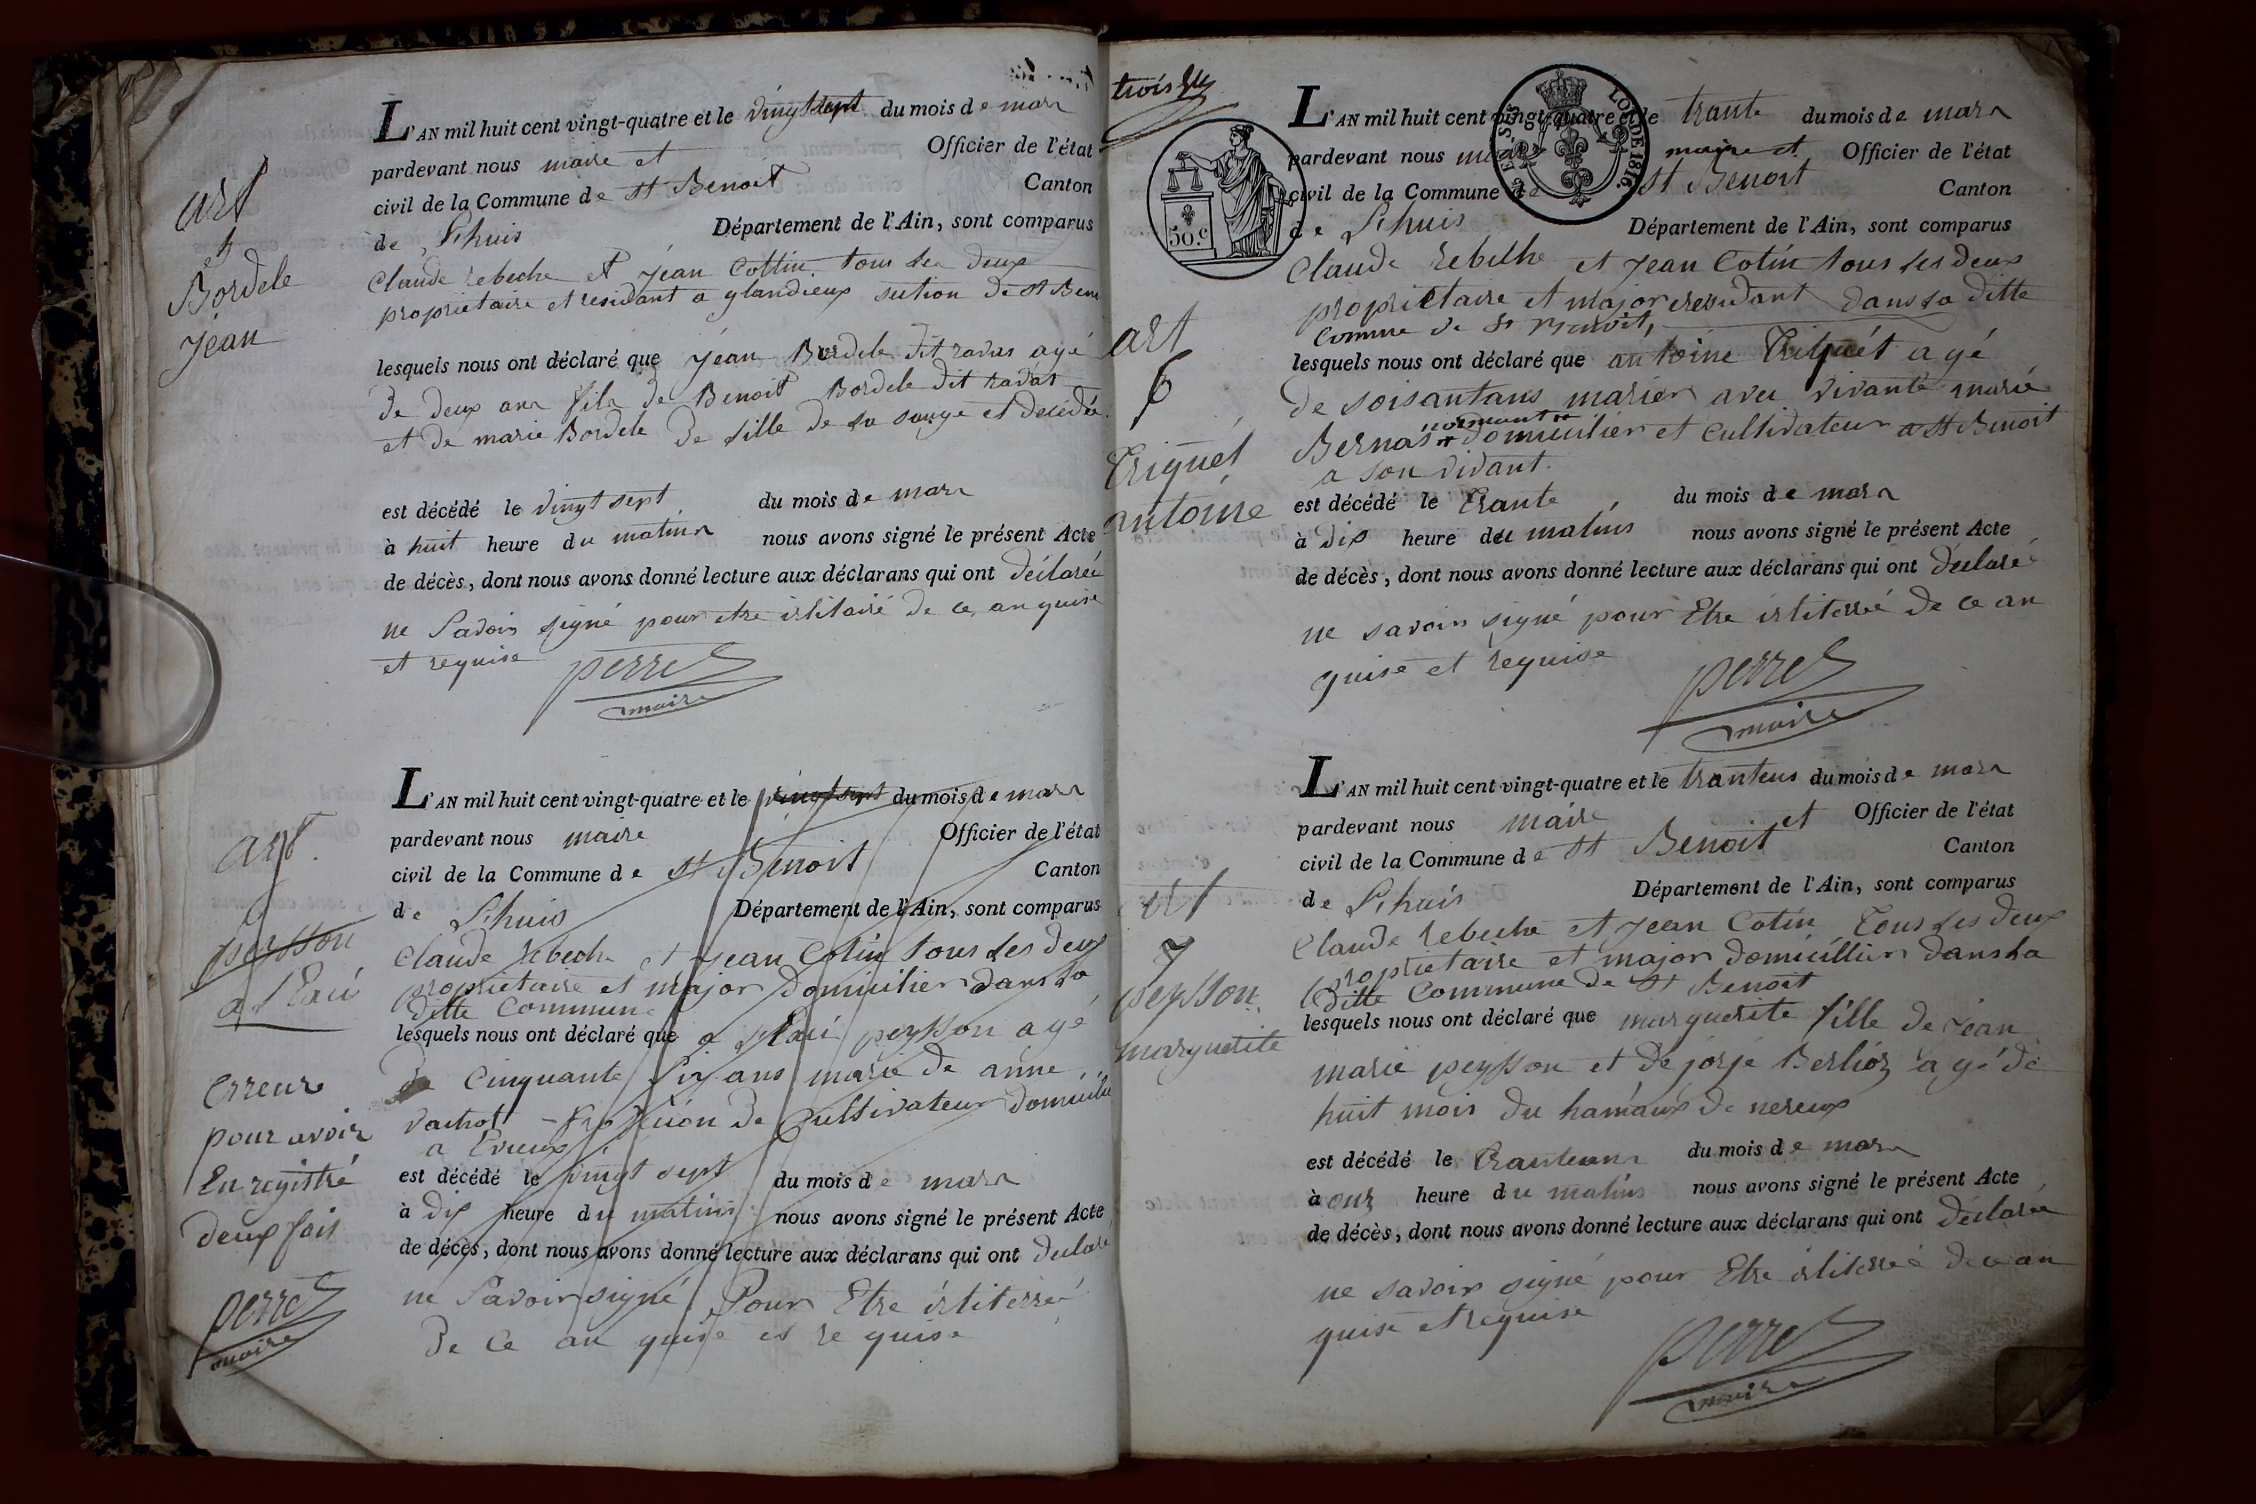 art
Bordele
Jean
L'AN mil huit cent vingt-quatre et le vingt sept du mois de mars
pardevant nous maire et Officier de l'état
civil de la Commune de St Benoit Canton
de Lhuis Département de l'Ain, sont comparus
Claude rebeche et Jean Cottin tous les deux
propriétaire et residant a glandieux section de St Bene
lesquels nous ont déclaré que Jean Bordele dit ravas agé
De deux ans fils de Benoit Bordele dit ravas
et de marie Bordele De sille de la sauge et decédée
est décédé le vingt sept du mois de mars
à huit heure du matins nous avons signé le présent Acte
de décès, dont nous avons donné lecture aux déclarans qui ont déclarée
ne Savoir signé pour etre irlitairé de ce an quise
et requise
perret
maire
art
6
peysson
erreure
pour avoir
Enregistré
deux fois
perret
maire
L'AN mil huit cent vingt-quatre et le vingt sept du mois de mars
pardevant nous maire Officier de l'état
civil de la Commune de St Benoit Canton
de Lhuis Département de l'Ain, sont comparus
Claude rebeche et Jean Cotin tous les deux
propriétaire et major domicilier dans la
ditte Commune
lesquels nous ont déclaré que peysson agé
de Cinquante six ans marié de anne
vachot de Cultivateur domicilié
a Evieux
est décédé le vingt sept du mois de mars
à dix heure du matins nous avons signé le présent Acte
de décès, dont nous avons donné lecture aux déclarans qui ont declaré
ne Savoir signé Pour Etre irliterré
De Ce an quise et requise
trois
50.c
LOI DE 1816.
art
6
Triquet
antoine
L'AN mil huit cent vingt-quatre et le trante du mois de mars
pardevant nous maire et Officier de l'état
civil de la Commune de St Benoit Canton
de Lhuis Département de l'Ain, sont comparus
Claude rebeche et Jean Cotin tous les deux
propriétaire et major residant dans la ditte
Comune de St Benoit,
lesquels nous ont déclaré que antoine Triquet agé
de soisantans marier avec vivante marie
Bernas domicilier et cultivateur a St Benoit
a son vivant.
est décédé le trante du mois de mars
à dix heure du matins nous avons signé le présent Acte
de décès, dont nous avons donné lecture aux déclarans qui ont déclaré
ne savoir signé pour Etre irliterré de ce an
quise et requise
perret
maire
art
7
peysson
marguerite
L'AN mil huit cent vingt-quatre et le tranteus du mois de mars
pardevant nous maire et Officier de l'état
civil de la Commune de St Benoit Canton
de Lhuis Département de l'Ain, sont comparus
Claude rebeche et Jean Cotin Tous les deux
propriétaire et major domicillier dans la
Ditte Commune de St Benoit
lesquels nous ont déclaré que marguerite fille de Jean
marie peysson et de jorje Berlioz agé de
huit mois du hamaux de nereux
est décédé le tranteuns du mois de mars
à onz heure du matins nous avons signé le présent Acte
de décès, dont nous avons donné lecture aux déclarans qui ont déclarée
ne savoir signé pour Etre irliterré de ce an
quise et requise
perret
maire